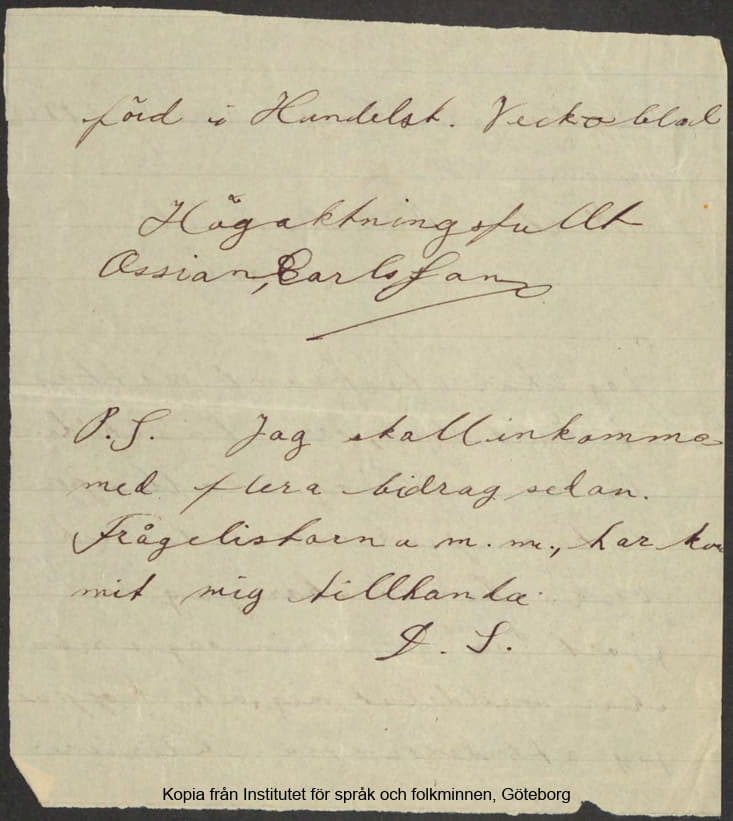 förd i Handelst. Veckoblad
Högaktningsfullt
Ossian Carlsson
P.S. Jag skall inkomma
med flera bidrag sedan.
Frågelistorna m.m., har kom
mit mig tillhanda.
D. S.
Kopia från Institutet för språk och folkminnen, Göteborg